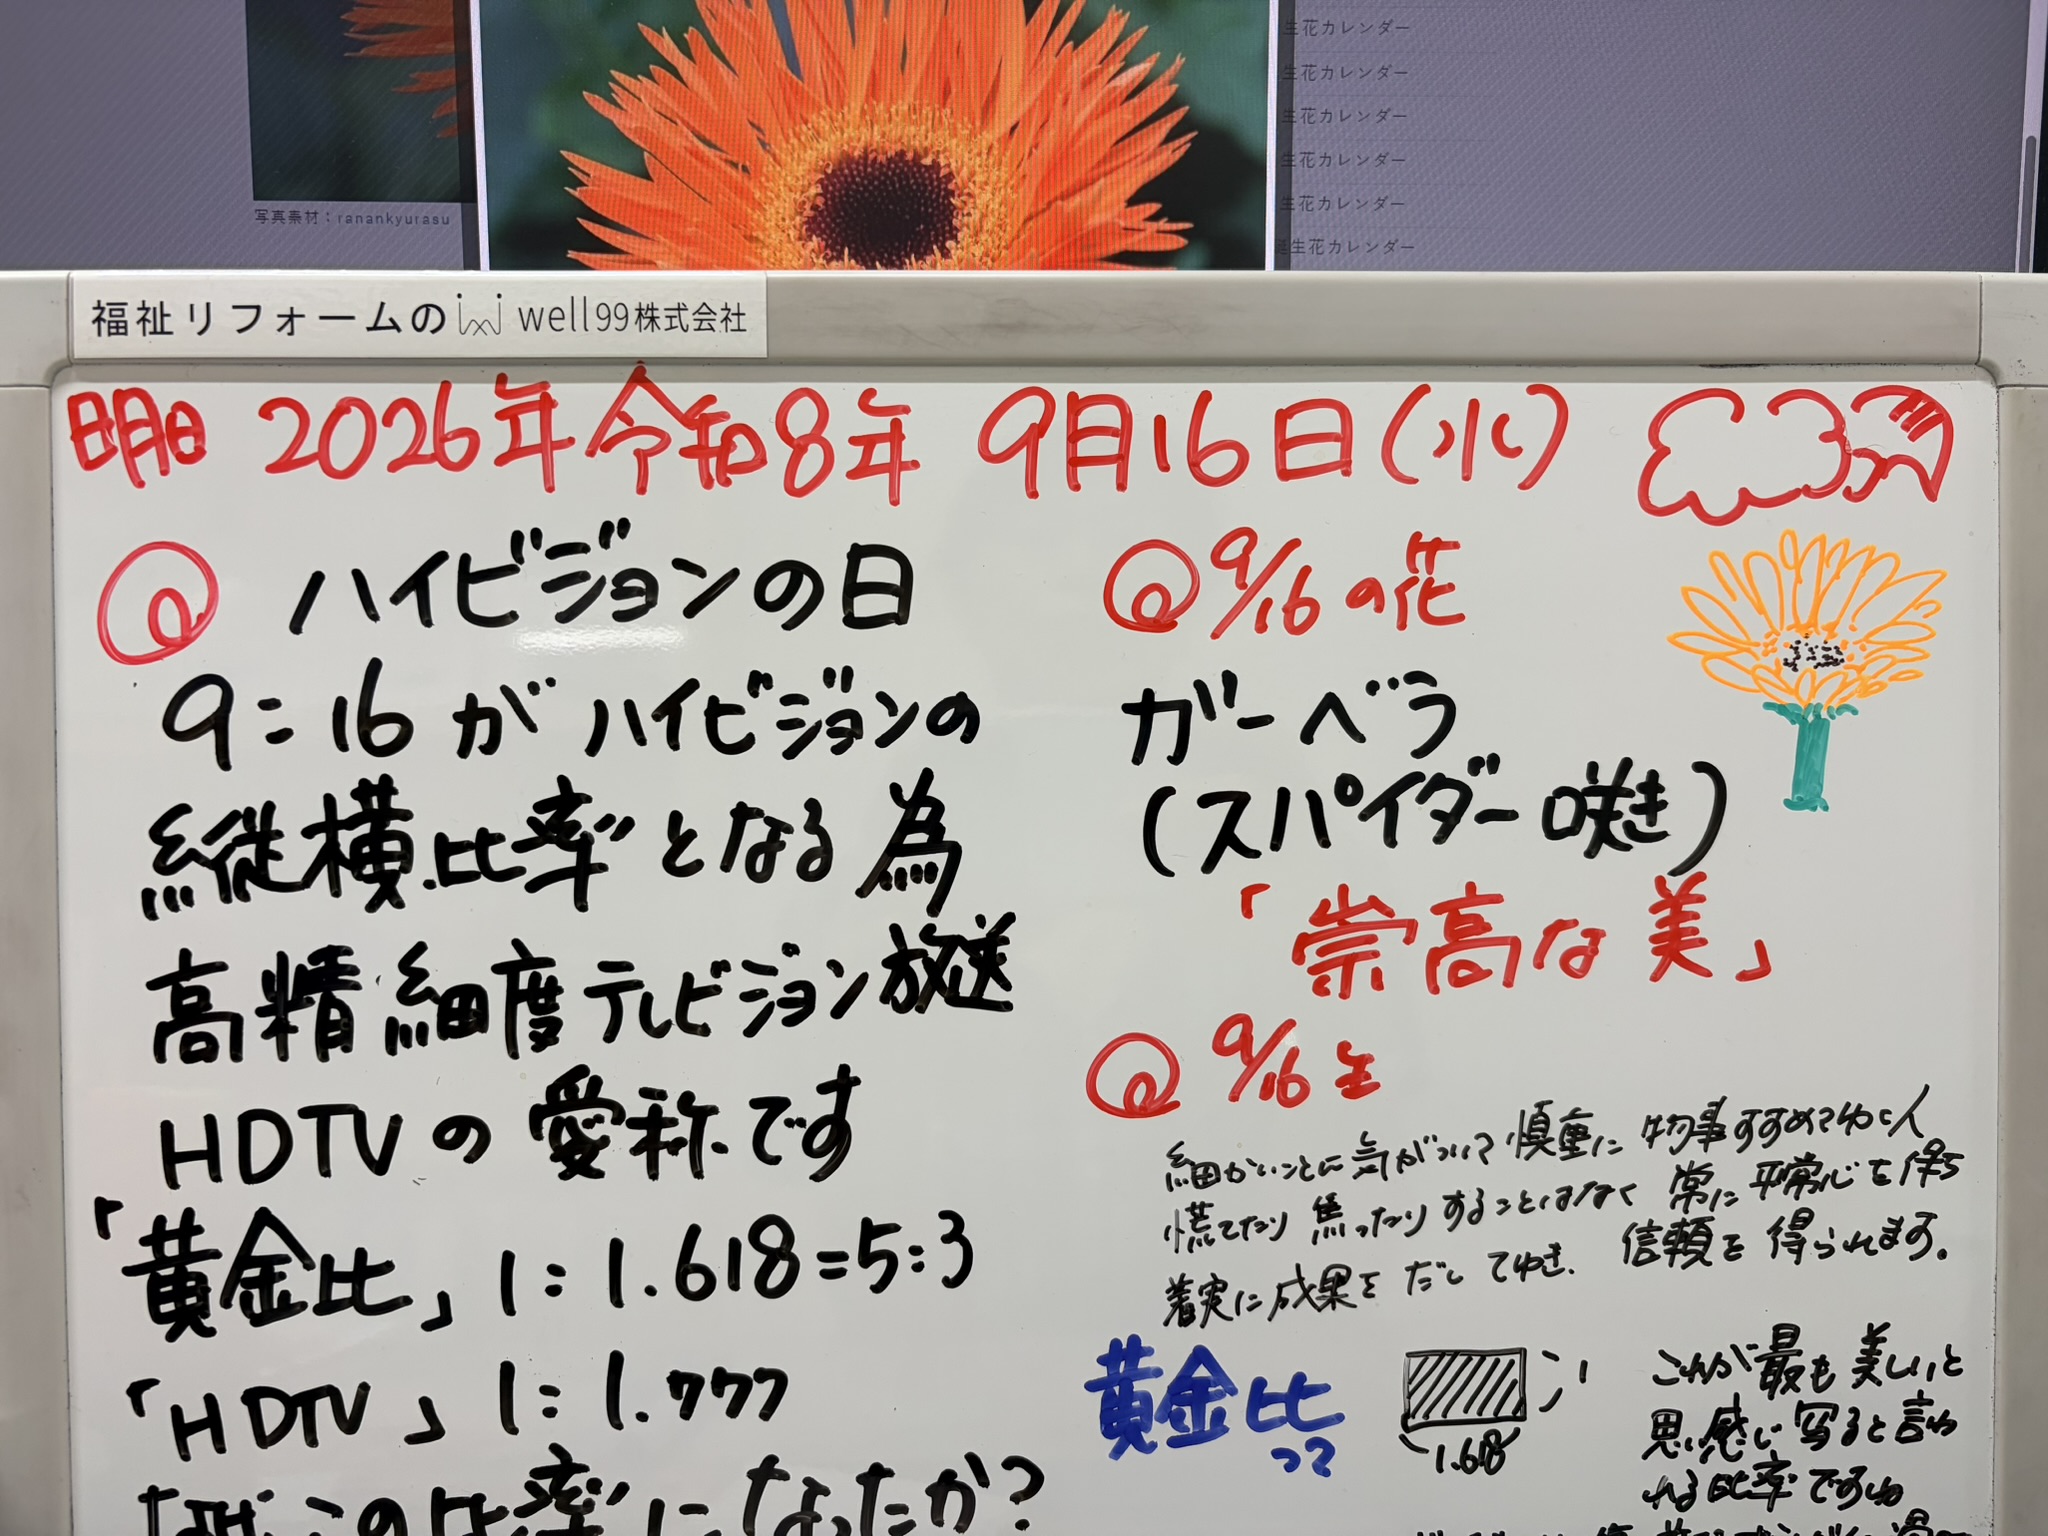 生花カレンダー
生花カレンダー
生花カレンダー
生花カレンダー
生花カレンダー
誕生花カレンダー
写真素材：ranankyurasu
福祉リフォームの well99株式会社
明日 2026年令和8年 9月16日(水)
ハイビジョンの日
9:16がハイビジョンの
縦横比率となる為
高精細度テレビジョン放送
HDTVの愛称です
「黄金比」1:1.618=5:3
「HDTV」1:1.777
この比率になったか?
9/16の花
ガーベラ
(スパイダー咲き)
「崇高な美」
9/16生
細かいことに気がついて慎重に物事すすめてゆく人
慌てたり焦ったりすることはなく常に平常心を保ち
着実に成果をだしてゆき、信頼を得られます。
黄金比って
1
1.618
これが最も美しいと
思い感じ写ると言わ
れる比率ですね